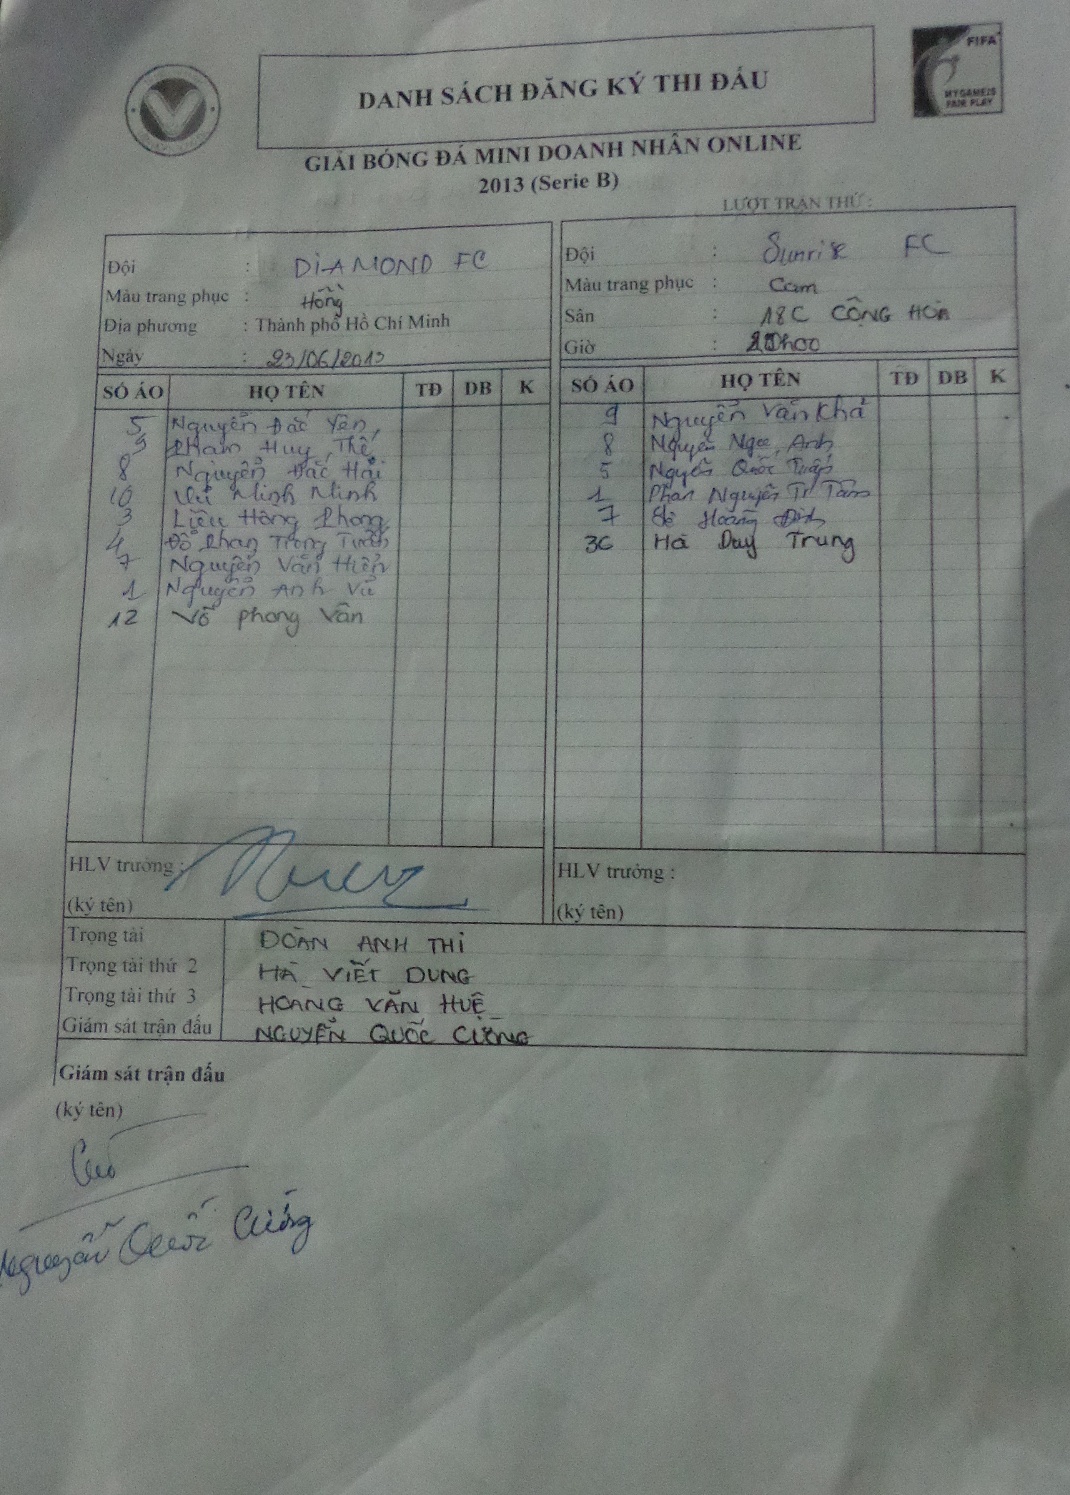 DANH SÁCH ĐĂNG KÝ THI ĐẤU
FIFA
MY GAME IS
FAIR PLAY
GIẢI BÓNG ĐÁ MINI DOANH NHÂN ONLINE
2013 (Serie B)
LƯỢT TRẬN THỨ :
Đội : DIAMOND FC
Màu trang phục : Hồng
Địa phương : Thành phố Hồ Chí Minh
Ngày : 23/06/2013
Đội : Sunrise FC
Màu trang phục : Cam
Sân : 18C CỘNG HÒA
Giờ : 20h00
SỐ ÁO HỌ TÊN TĐ DB K
5 Nguyễn Đắc Yên
9 Phạm Huy Thế
8 Nguyễn Đắc Hải
10 Vũ Minh Minh
3 Liêu Hồng Phong
4 Đỗ Phan Trọng Tuấn
7 Nguyễn Văn Hiển
1 Nguyễn Anh Vũ
12 Võ Phong Vân
SỐ ÁO HỌ TÊN TĐ DB K
9 Nguyễn Văn Khả
8 Nguyễn Ngọc Anh
5 Nguyễn Quốc Tuấn
1 Phan Nguyễn Tr Tâm
7 Hoàng Định
36 Hà Duy Trung
HLV trưởng :
(ký tên)
HLV trưởng :
(ký tên)
Trọng tài ĐOÀN ANH THI
Trọng tài thứ 2 HÀ VIẾT DUNG
Trọng tài thứ 3 HOÀNG VĂN HUỆ
Giám sát trận đấu NGUYỄN QUỐC CƯỜNG
Giám sát trận đấu
(ký tên)
Nguyễn Quốc Cường